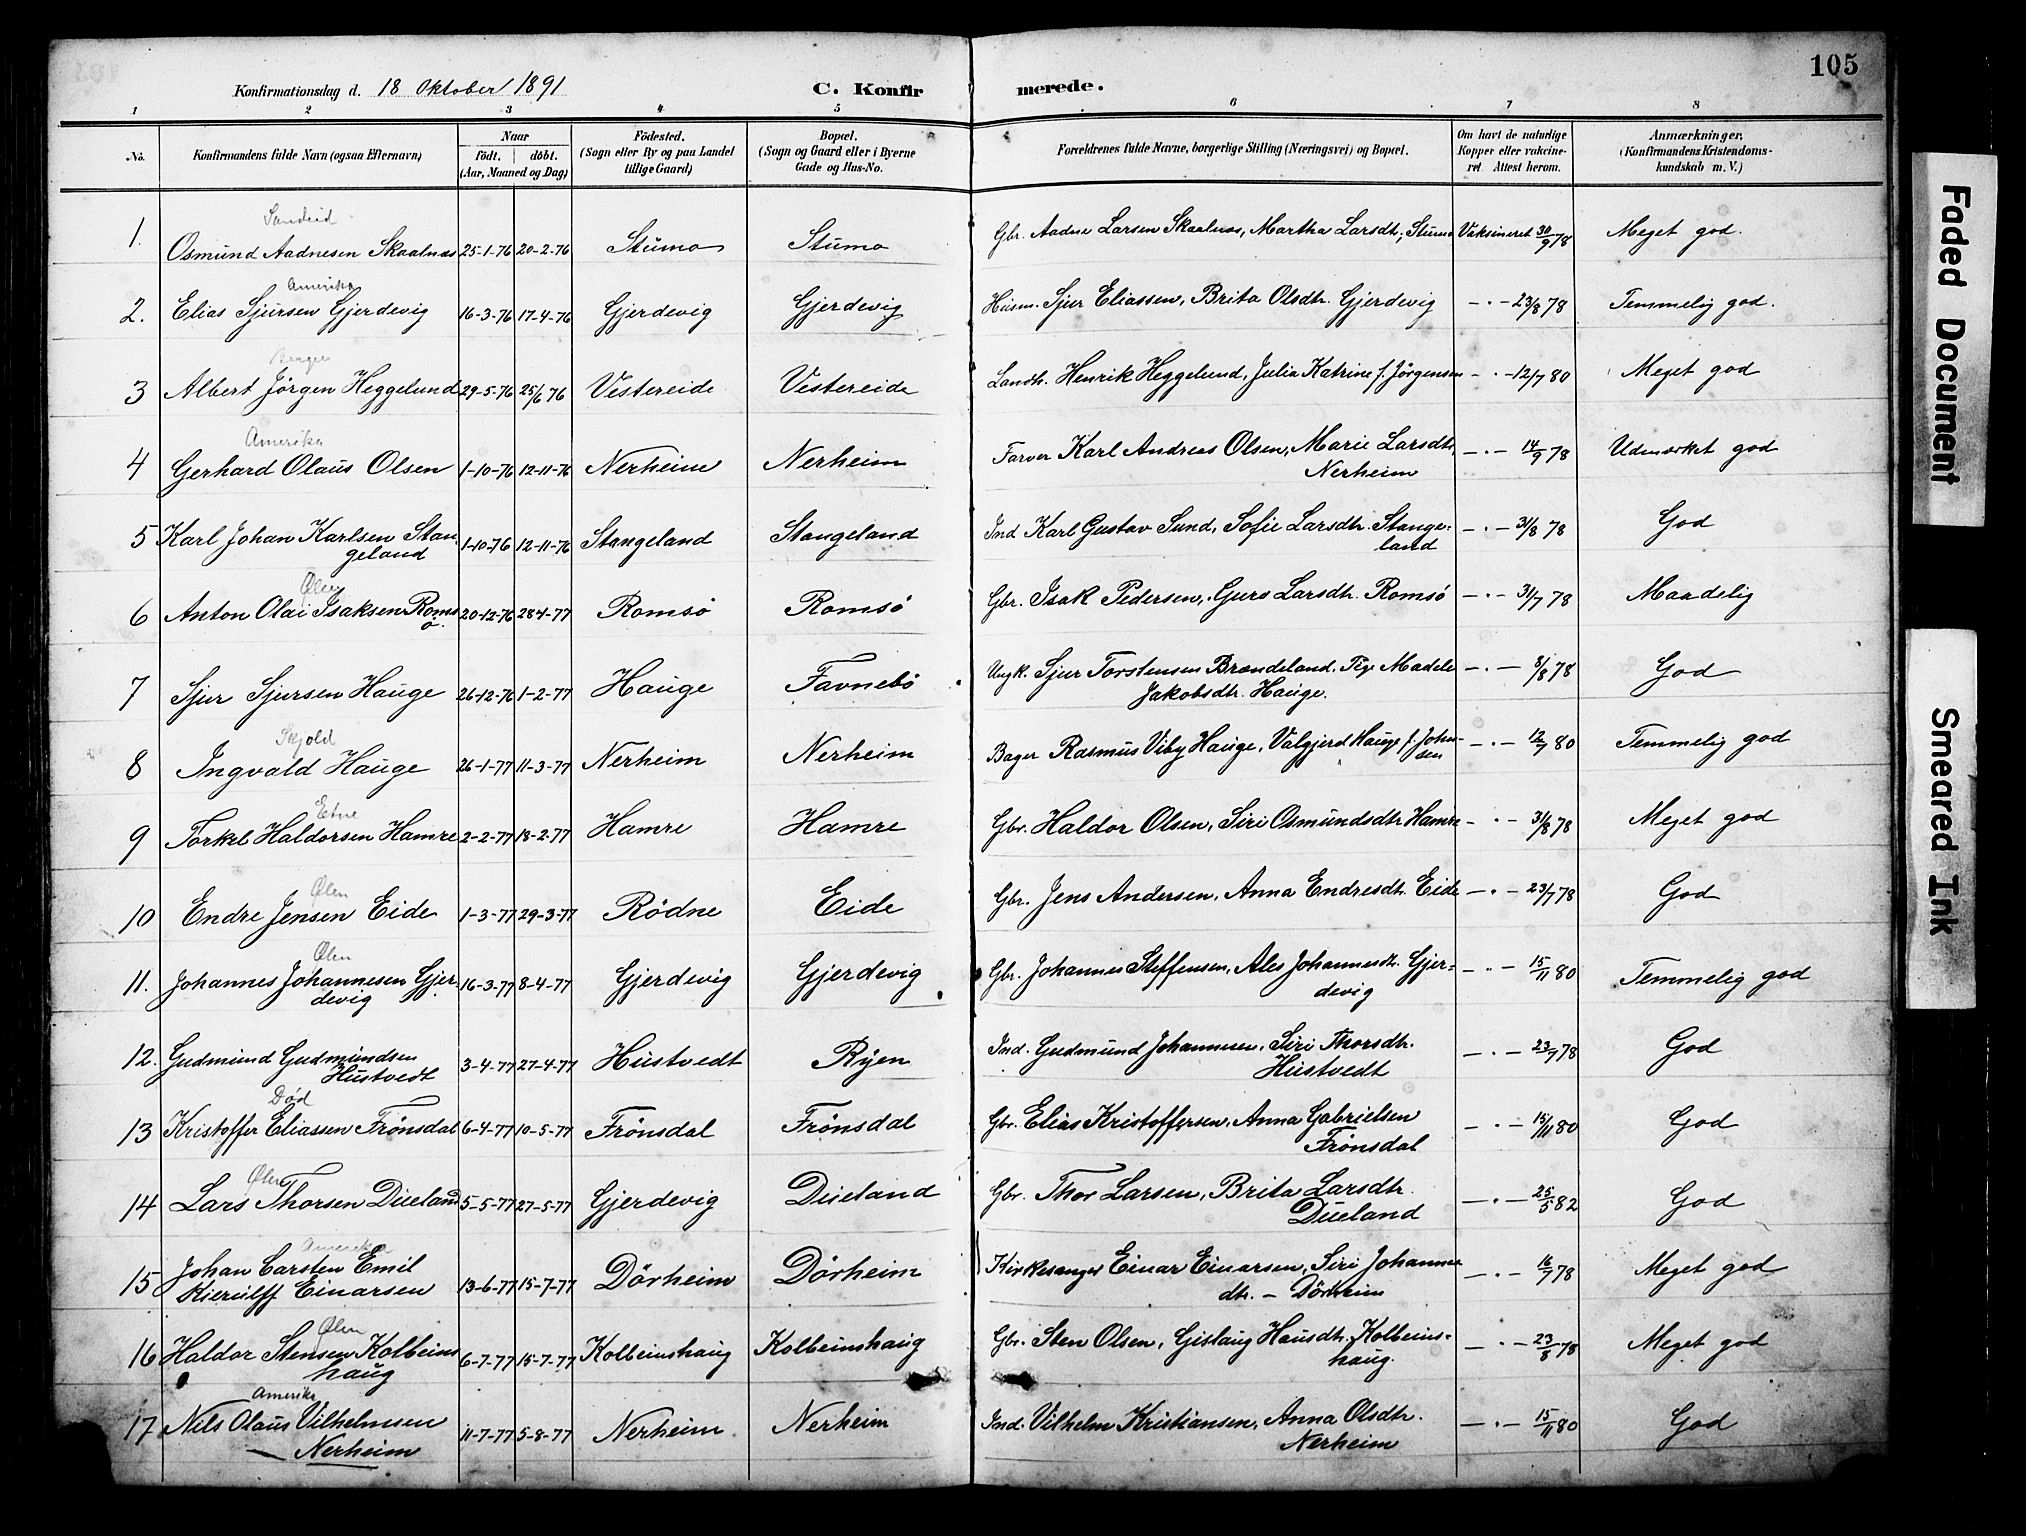 105
Konfirmationsdag d. 18 Oktober 1891 C. Konfir merede.
1 2 3 4 5 6 7 8
No. Konfirmandens fulde Navn (ogsaa Efternavn) Naar födt. döbt. (Aar, Maaned og Dag) Födested. (Sogn eller By og paa Landet tillige Gaard) Bopæl. (Sogn og Gaard eller i Byerne Gade og Hus-No. Forældrenes fulde Navne, borgerlige Stilling (Næringsvei) og Bopæl. Om havt de naturlige Kopper eller vakcineret Attest herom. Anmærkninger. (Konfirmandens Kristendomskundskab m. V.)
Sandeid
1. Osmund Aadnesen Skaalnæs 25-1-76 20-2-76 Stumo Stumo Gbr. Aadne Larsen Skaalnæs, Martha Larsdt; Stumo Vaksineret 30/9 78 Meget god.
Amerika
2. Elias Sjursen Gjerdevig 16-3-76 17-4-76 Gjerdevig Gjerdevig Husm. Sjur Eliassen, Brita Olsdtr. Gjerdevig —"— 23/8 78 Temmelig god.
Bergen
3 Albert Jörgen Heggelund 29-5-76 25/6 76 Vestereide Vestereide Landh. Henrik Heggelund, Julia Katrine f. Jörgensen —"— 12/7 80 Meget god
Amerika
4 Gerhard Olaus Olsen 1-10-76 12-11-76 Nerheim Nerheim Farver Karl Andreas Olsen, Marie Larsdtr, —"— 14/9 78 Udmærket god
Nerheim
5 Karl Johan Karlsen Stan 1-10-76 12-11-76 Stangeland Stangeland Ind Karl Gustav Sund, Sofie Larsdtr. Stange= —"— 31/8 78 God
geland land
Ölen
6 Anton Olai Isaksen Roms 20-12-76 28-1-77 Romsö Romsö Gbr. Isak Pedersen, Guro Larsdtr. Romsö —"— 31/7 78 Maadelig
ö.
7 Sjur Sjursen Hauge 26-12-76 1-2-77 Hauge Favnebö Ungk. Sjur Torstensen Brændeland. Pige Madele —"— 8/8 78 God
Jakobsdtr. Hauge.
Skjold
8 Ingvald Hauge 26-1-77 11-3-77 Nerheim Nerheim Bager Rasmus Viby Hauge, Valgjerd Hauge f. John- —"— 12/7 80 Temmelig god
sen
Etne
9 Torkel Haldorsen Hamre 2-2-77 18-2-77 Hamre Hamre Gbr. Haldor Olsen, Siri Osmundsdtr Hamre —"— 31/8 78 Meget god
Ölen
10 Endre Jensen Eide 1-3-77 29-3-77 Rödne Eide Gbr. Jens Andersen, Anna Endresdtr. Eide —"— 23/7 78 God
Ölen
11. Johannes Johannesen Gjer 16-3-77 8-4-77 Gjerdevig Gjerdevig Gbr. Johannes Steffensen, Ales Johannesdt. Gjer= —"— 15/11 80 Temmelig god
devig devig
12. Gudmund Gudmundsen 3-4-77 27-4-77 Hustvedt Ryen Ind. Gudmund Johannesen, Siri Thorsdtr. —"— 23/7 78 God
Hustvedt Hustvedt
Död
13 Kristoffer Eliassen Frönsdal 6-4-77 10-5-77 Frönsdal Frönsdal Gbr. Elias Kristoffersen, Anna Gabrielsen —"— 15/11 80 God
Frönsdal
Ölen
14 Lars Thorsen Dueland 5-5-77 27-5-77 Gjerdevig Dueland Gbr. Thor Larsen, Brita Larsdtr. —"— 25/5 82 God
Dueland
Amerika
15 Johan Carsten Emil 13-6-77 15-7-77 Dörheim Dörheim Kirkesanger Einar Einarsen, Siri Johannes —"— 16/7 78 Meget god
Kierulff Einarsen dtr. — Dörheim
Ölen
16 Haldor Stensen Kolbeins 6-7-77 15-7-77 Kolbeinshaug Kolbeinshaug Gbr. Sten Olsen, Gislaug Hansdtr. Kolbeins= —"— 23/8 78 Meget god
haug haug.
Amerika
17 Nils Olaus Vilhelmsen 11-7-77 5-8-77 Nerheim Nerheim Ind. Vilhelm Kristiansen, Anna Olsdtr. —"— 15/11 80 God
Nerheim Nerheim
Faded Document
Smeared Ink